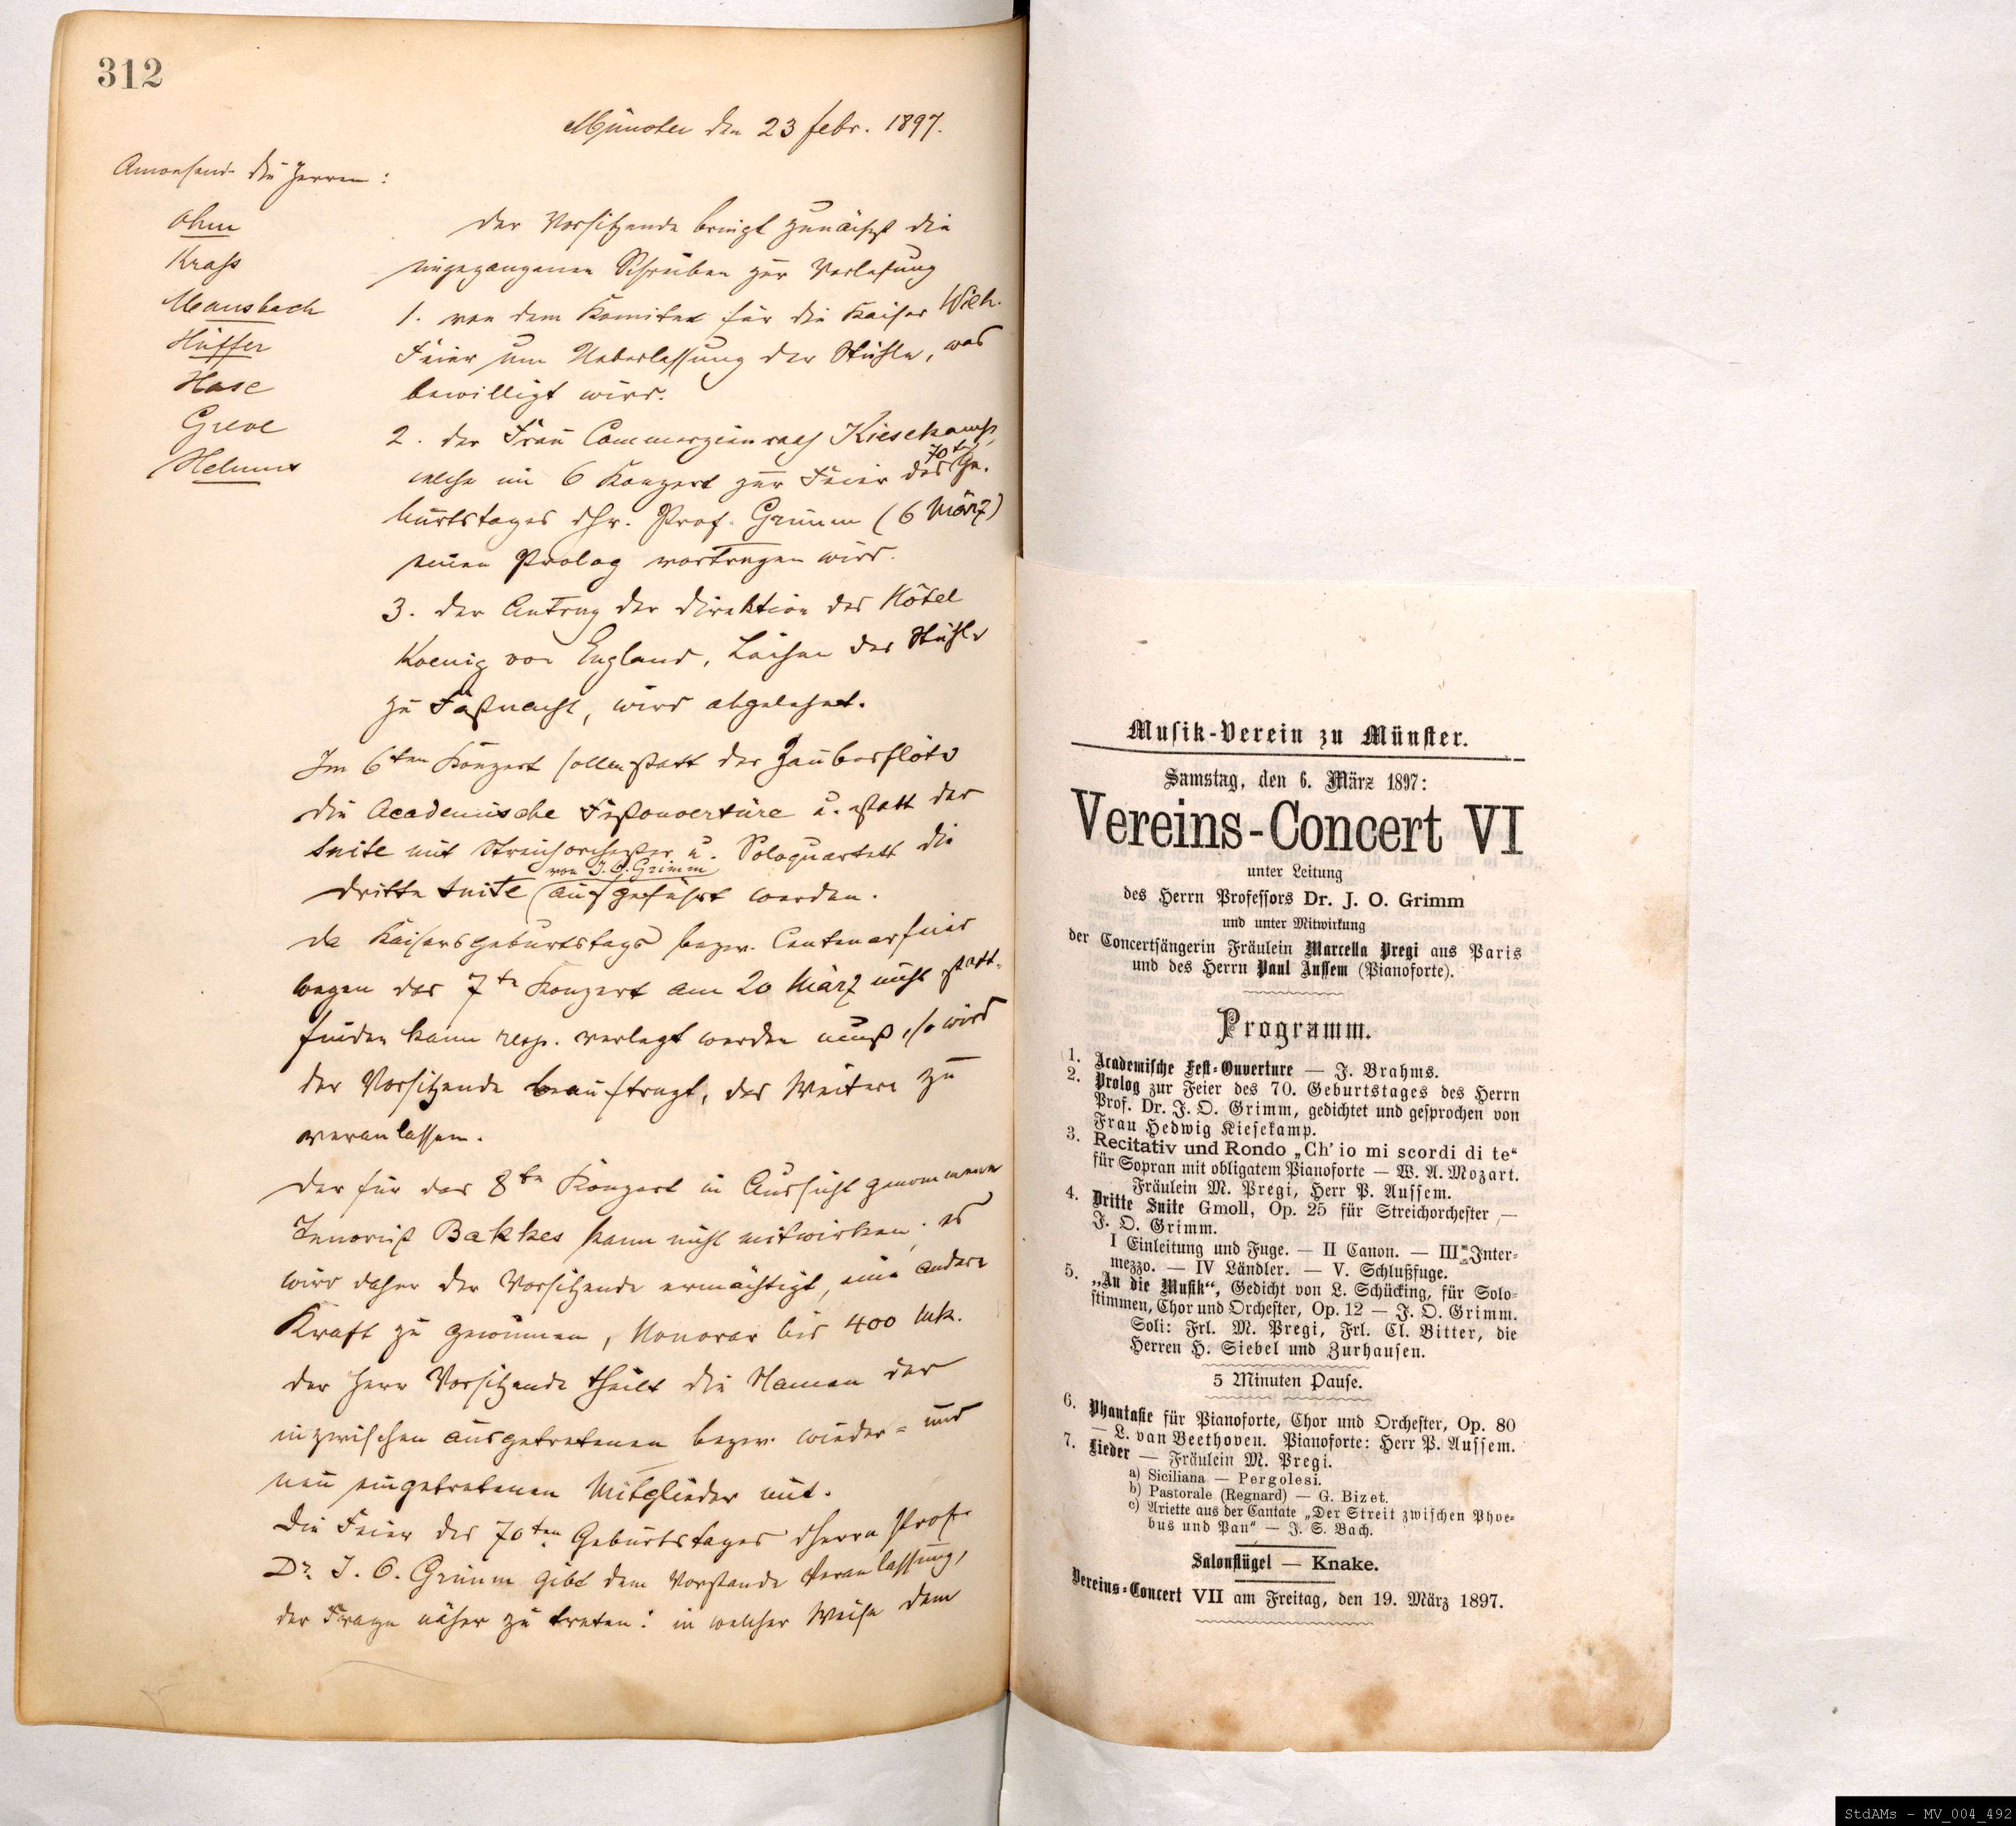 312
Münster den 23 febr. 1897.
Anwesend die Herren:
Ohm
Krass
Mausbach
Hüffer
Hase
Greve
Helmus
Der Vorsitzende bringt zunächst die
eingegangenen Schreiben zur Verlesung
1. von dem Komitee für die Kaiser Wilh.
Feier um Ueberlassung der Stühle, was
bewilligt wird.
2. der Frau Commerzienrath Kiesekamp,
welche im 6 Konzert zur Feier des 70ten Ge-
burtstages Hr. Prof. Grimm (6 März)
einen Prolog vortragen wird.
3. Der Antrag der Direktion des Hôtel
Koenig von England, Leihen der Stühle
zu Faßnacht, wird abgelehnt.
Im 6ten Konzert sollen statt der Zauberflöte
die Academische Festouvertüre u. statt der
Suite mit Streichorchester u. Soloquartett die
dritte Suite von J. O. Grimm aufgeführt werden.
Da Kaisersgeburtstags bezw. Centenarfeier
wegen das 7te Konzert am 20 März nicht statt-
finden kann resp. verlegt werden muß, so wird
der Vorsitzende beauftragt, das Weitere zu
veranlassen.
Der für das 8te Konzert in Aussicht genommene
Tenorist Bakkes kann nicht mitwirken; es
wird daher der Vorsitzende ermächtigt, eine andere
Kraft zu gewinnen, Honorar bis 400 Mk.
Der Herr Vorsitzende theilt die Namen der
inzwischen ausgetretenen bezw. wieder- und
neu eingetretenen Mitglieder mit.
Die Feier des 70ten Geburtstages Herrn Prof.
Dr. J. O. Grimm gibt dem Vorstande Veranlassung,
der Frage näher zu treten: in welcher Weise dem
Musik-Verein zu Münster.
Samstag, den 6. März 1897:
Vereins-Concert VI
unter Leitung
des Herrn Professors Dr. J. O. Grimm
und unter Mitwirkung
der Concertsängerin Fräulein Marcella Pregi aus Paris
und des Herrn Paul Aussem (Pianoforte).
Programm.
1. Academische Fest-Ouverture — J. Brahms.
2. Prolog zur Feier des 70. Geburtstages des Herrn
Prof. Dr. J. O. Grimm, gedichtet und gesprochen von
Frau Hedwig Kiesekamp.
3. Recitativ und Rondo „Ch' io mi scordi di te“
für Sopran mit obligatem Pianoforte — W. A. Mozart.
Fräulein M. Pregi, Herr P. Aussem.
4. Dritte Suite Gmoll, Op. 25 für Streichorchester —
J. O. Grimm.
I Einleitung und Fuge. — II Canon. — III Inter-
mezzo. — IV Ländler. — V. Schlußfuge.
5. „An die Musik“, Gedicht von L. Schücking, für Solo-
stimmen, Chor und Orchester, Op. 12 — J. O. Grimm.
Soli: Frl. M. Pregi, Frl. Cl. Bitter, die
Herren H. Siebel und Zurhausen.
5 Minuten Pause.
6. Phantasie für Pianoforte, Chor und Orchester, Op. 80
— L. van Beethoven. Pianoforte: Herr P. Aussem.
7. Lieder — Fräulein M. Pregi.
a) Siciliana — Pergolesi.
b) Pastorale (Regnard) — G. Bizet.
c) Ariette aus der Cantate „Der Streit zwischen Phoe-
bus und Pan“ — J. S. Bach.
Salonflügel — Knake.
Vereins-Concert VII am Freitag, den 19. März 1897.
StdAMs - MV_004_492